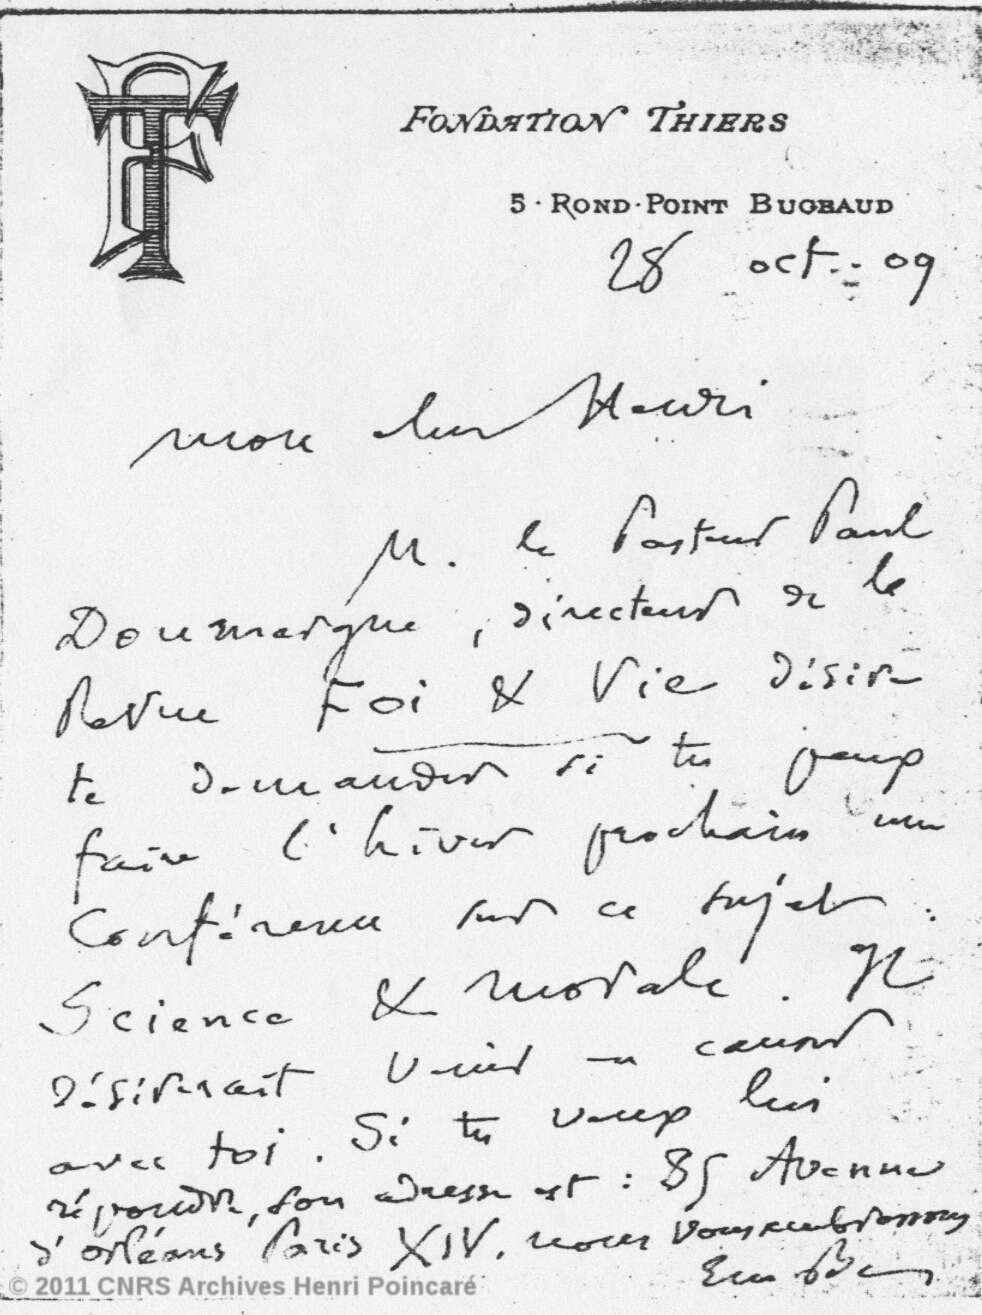 FT
FONDATION THIERS
5 · ROND-POINT BUGEAUD
28 oct. 09
mon cher Henri
M. le Pasteur Paul
Doumergue, directeur de la
Revue Foi & Vie désire
te demander si tu peux
faire l'hiver prochain une
Conférence sur ce sujet :
Science & morale. Il
désirerait venir en causer
avec toi. Si tu veux lui
répondre, son adresse est : 85 Avenue
d'orléans Paris XIV. nous vous embrassons
© 2011 CNRS Archives Henri Poincaré